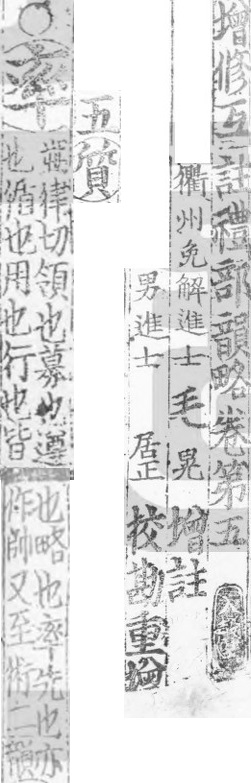 增修互註禮部韻略卷第五
衢州免解進士毛晃增註
男進士居正校勘重增
五質
率
朔律切領也募也遵
也循也用也行也皆
也略也率先也亦
作帥又至術二韻